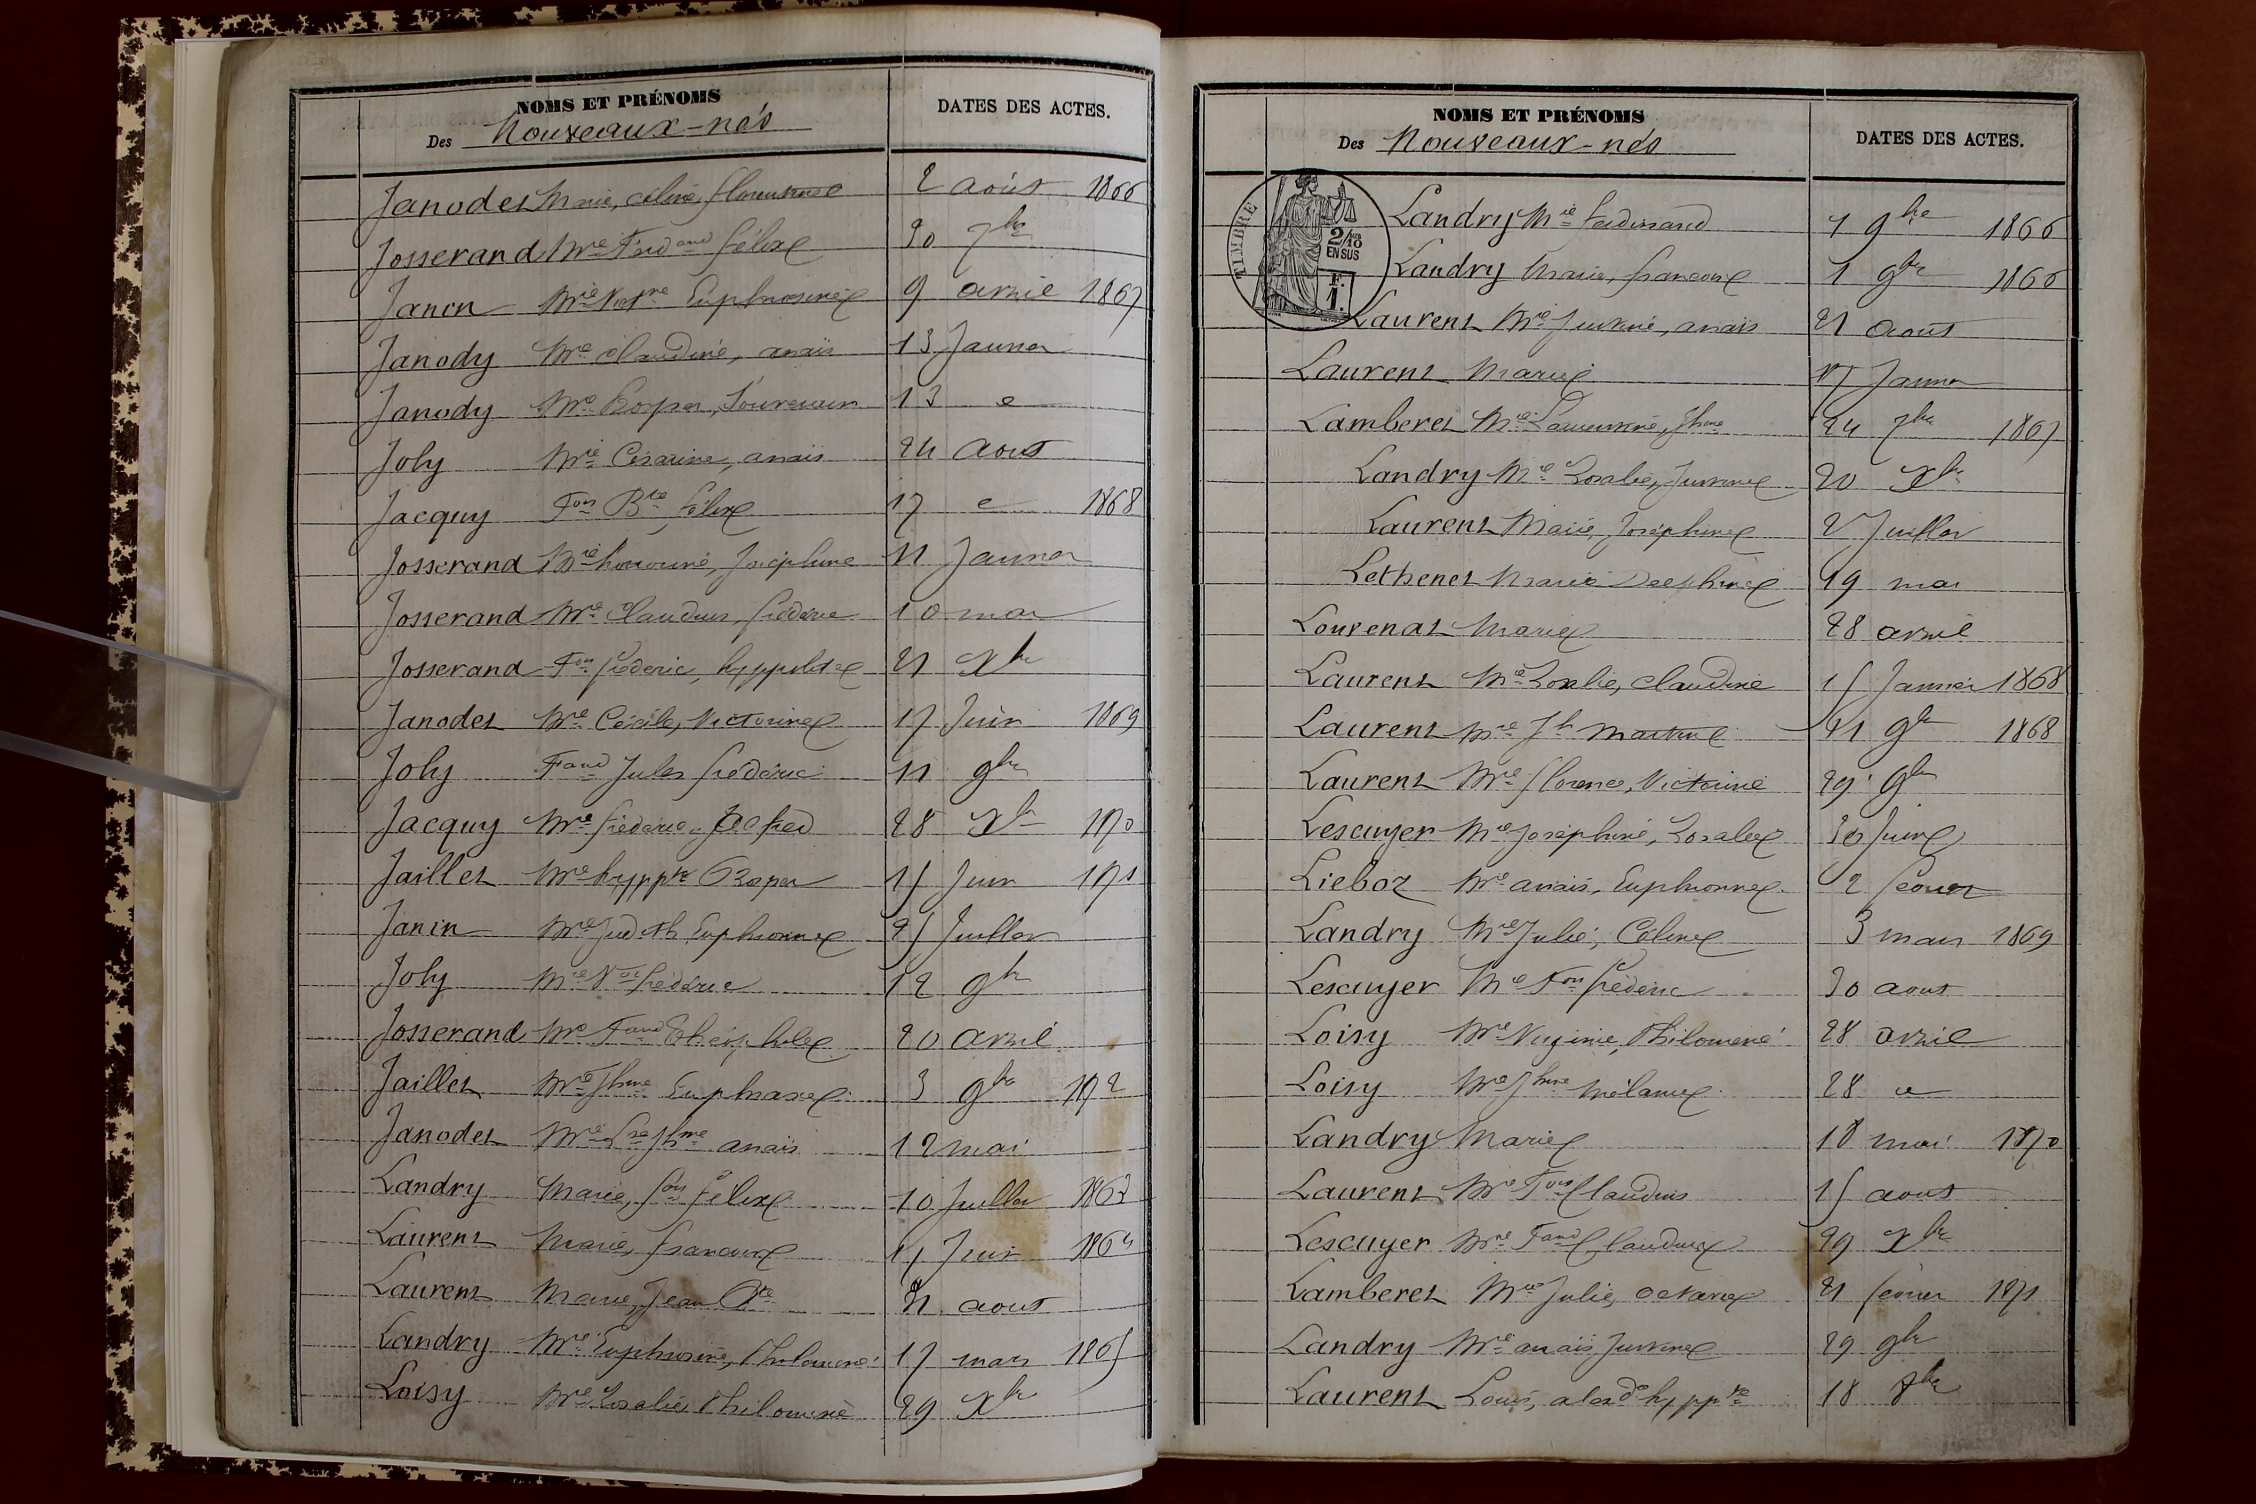 NOMS ET PRÉNOMS
Des Nouveaux-nés
DATES DES ACTES.
Janodet Marie, Celine, Florentine 2 août 1866
Josserand Mie Ferd and Félix 30 7bre
Janin Mie Vict ne Euphrosine 9 avril 1867
Janody Mie Claudine, anaïs 13 Janvier
Janody Mie Prosper, Souverain 13 e
Joly Mie Césarine, anaïs 24 aout
Jacquy Fois Bte félix 17 e 1868
Josserand Mie honorine, Joséphine 11 Janvier
Josserand Mie Claudius, frédéric 10 mai
Josserand Fois frédéric, hyppolite 21 Xbre
Janodet Mie Cécile, Victorine 17 Juin 1869
Joly Fand Jules frédéric 11 9bre
Jacquy Mie frédéric, Alfred 28 Xbre 1870
Jaillet Mie hyppte Prosper 15 Juin 1871
Janin Mie Judith Euphrosine 25 Juillet
Joly Mie Vor frédéric 12 9bre
Josserand Mie Fand Théophile 20 avril
Jaillet Mie Jhine Euphrasie 3 9bre 1872
Janodet Mie Jhine anaïs 12 mai
Landry Marie, fois félix 10 Juillet 1863
Laurent Marie, francoise 15 Juin 1864
Laurent Marie, Jean Bte 21 aout
Landry Mie Euphrosine, Philomene 17 mars 1865
Loisy Mie Rosalie, Philomene 29 Xbre
NOMS ET PRÉNOMS
Des Nouveaux-nés
DATES DES ACTES.
TIMBRE
2/10 EN SUS
F. 1.
Landry Mie ferdinand 1 9bre 1866
Landry Marie, francoise 1 9bre 1866
Laurent Mie Justine, anaïs 21 août
Laurent Marie 17 Janvier
Lamberet Mie Laurentine, Jhine 24 7bre 1867
Landry Mie Rosalie, Justine 20 Xbre
Laurent Marie, Joséphine 2 Juillet
Lethenet Marie Delphine 19 mai
Louvenat Marie 28 avril
Laurent Mie Rosalie, Claudine 15 Janvier 1868
Laurent Mie Jh Martin 21 9bre 1868
Laurent Mie florence, Victorine 29 9bre
Lescuyer Mie Joséphine, Rosalie 30 Juin
Lieboz Mie anaïs, Euphrosine 2 février
Landry Mie Julie, Celine 3 mars 1869
Lescuyer Mie Fois frédéric 30 aout
Loisy Mie Virginie, Philomene 28 avril
Loisy Mie Jhine mélanie 28 e
Landry Marie 18 mai 1870
Laurent Mie Fois Claudius 15 aout
Lescuyer Mie Fand Claudius 29 Xbre
Lamberet Mie Julie, octavie 21 février 1871
Landry Mie anaïs, Justine 29 9bre
Laurent Louis, alexdre hyppte 18 8bre